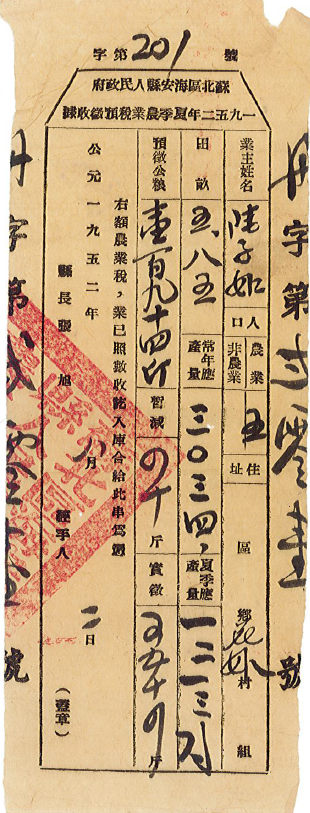 字第201號
蘇北區海安縣人民政府
一九五二年夏季農業稅預徵收據
業主姓名 陸子 人口 農業 非農業 五 住址 區 鄉 村 組
田畝 五、八五 常年應產量 三〇三四、 夏季應產量 一二一三
預徵公糧 壹百九十四斤 暫減 四十斤 實徵 斤
右額農業稅，業已照數收訖入庫合給此串爲憑
公元一九五二年 八月 二日
縣長張旭 經手人 (蓋章)
字第貳零壹號
字第 零壹號